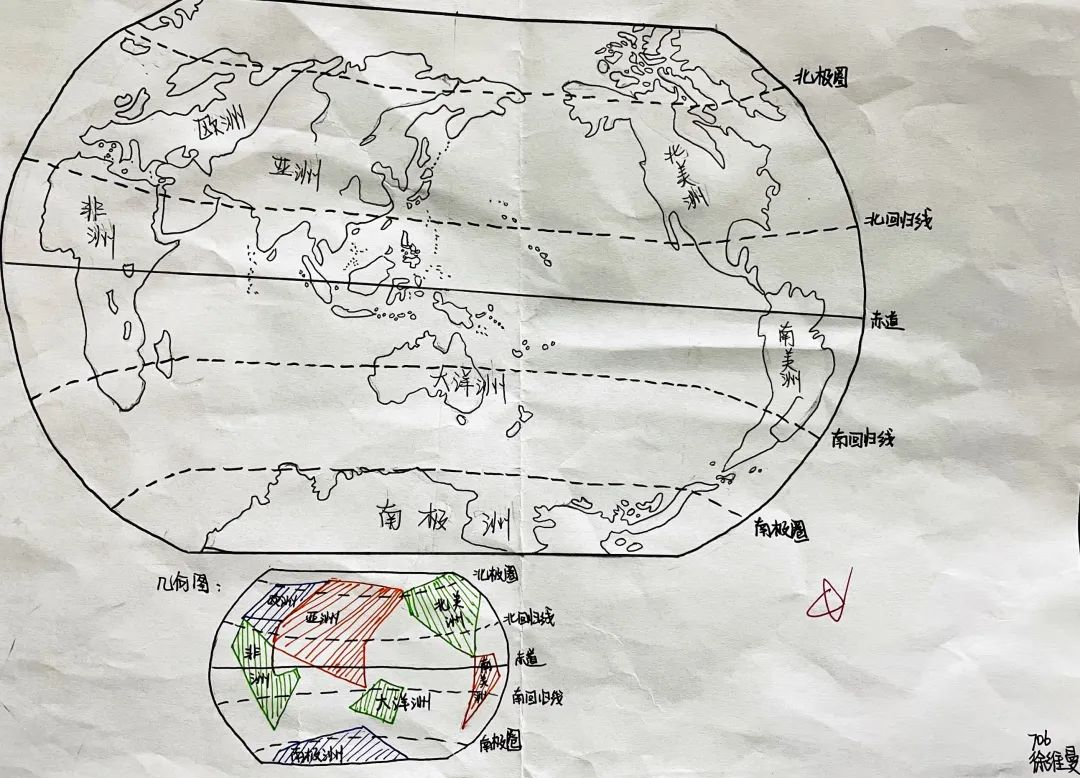 北极圈
欧洲
亚洲
北美洲
非洲
北回归线
赤道
南美洲
大洋洲
南回归线
南极洲
南极圈
几何图：
北极圈
欧洲
亚洲
北美洲
北回归线
非洲
赤道
南美洲
大洋洲
南回归线
南极洲
南极圈
706
徐维曼